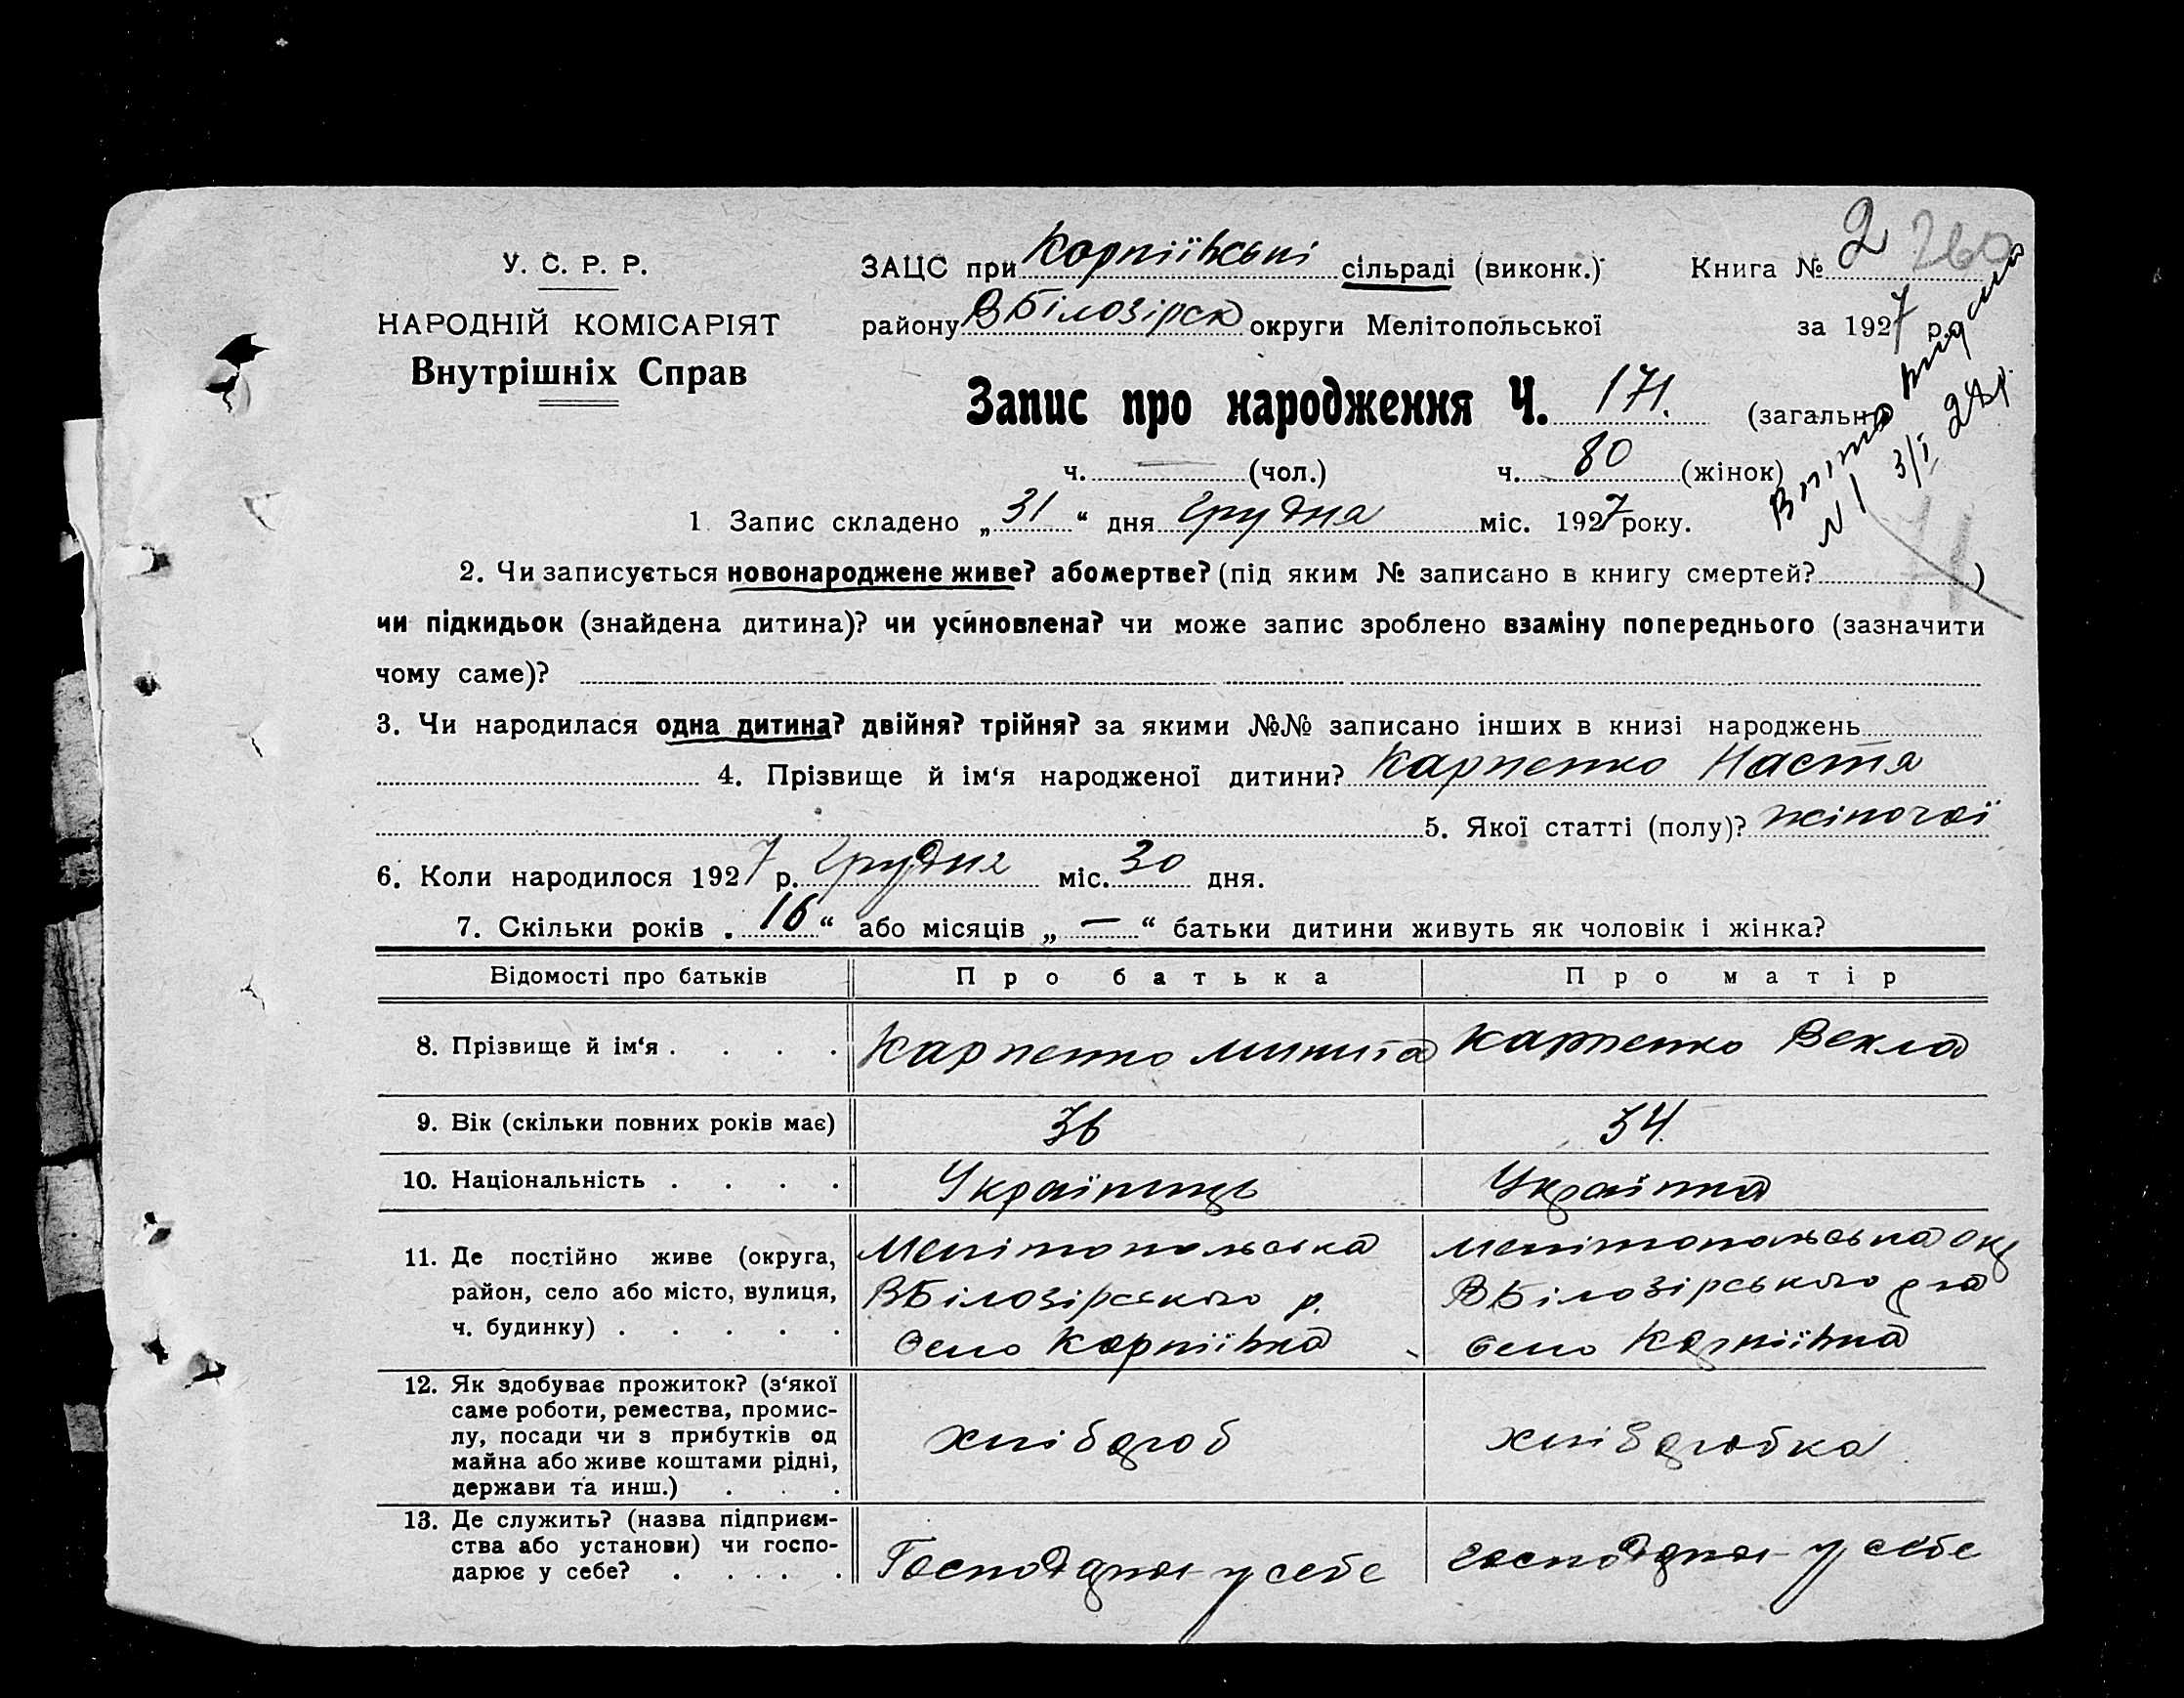 У. С. Р. Р.
НАРОДНІЙ КОМІСАРІЯТ
Внутрішніх Справ
ЗАЦС при Корніївські сільраді (виконк.)
Книга № 2 260
району ВБілозірск округи Мелітопольської
за 1927 р.
Запис про народження Ч. 171. (загальн
ч. — (чол.) ч. 80 (жінок)
№ 1 3/I 28р.
1 Запис складено „31“ дня грудня міс. 1927 року.
2. Чи записується новонароджене живе? або мертве? (під яким № записано в книгу смертей? )
чи підкидьок (знайдена дитина)? чи усиновлена? чи може запис зроблено взаміну попереднього (зазначити
чому саме)?
3. Чи народилася одна дитина? двійня? трійня? за якими №№ записано інших в книзі народжень
4. Прізвище й ім‘я народженої дитини? Карпенко Настя
5. Якої статті (полу)? жіночої
6. Коли народилося 1927 р. грудня міс. 30 дня.
7. Скільки років „16“ або місяців „—“ батьки дитини живуть як чоловік і жінка?
Відомості про батьків Про батька Про матір
8. Прізвище й ім‘я . . . . Карпенко Микита Карпенко Векла
9. Вік (скільки повних років має) 36 34.
10. Національність . . . . Українець Українка
11. Де постійно живе (округа, Мелітопольська Мелітопольська окр
район, село або місто, вулиця, ВБілозірського р. ВБілозірського р на
ч. будинку) . . . . . село Корніївка село Корніївка
12. Як здобуває прожиток? (з‘якої
саме роботи, ремества, промис-
лу, посади чи з прибутків од хлібороб хліборобка
майна або живе коштами рідні,
держави та инш.) . . .
13. Де служить? (назва підприєм-
ства або установи) чи госпо-
дарює у себе? . . . . . Господарює у себе господарює у себе